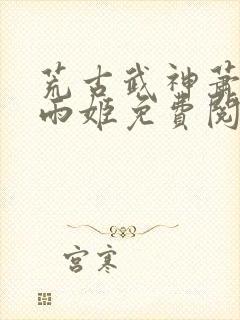 荒古武神萧
雨姬免費閱
宫寒